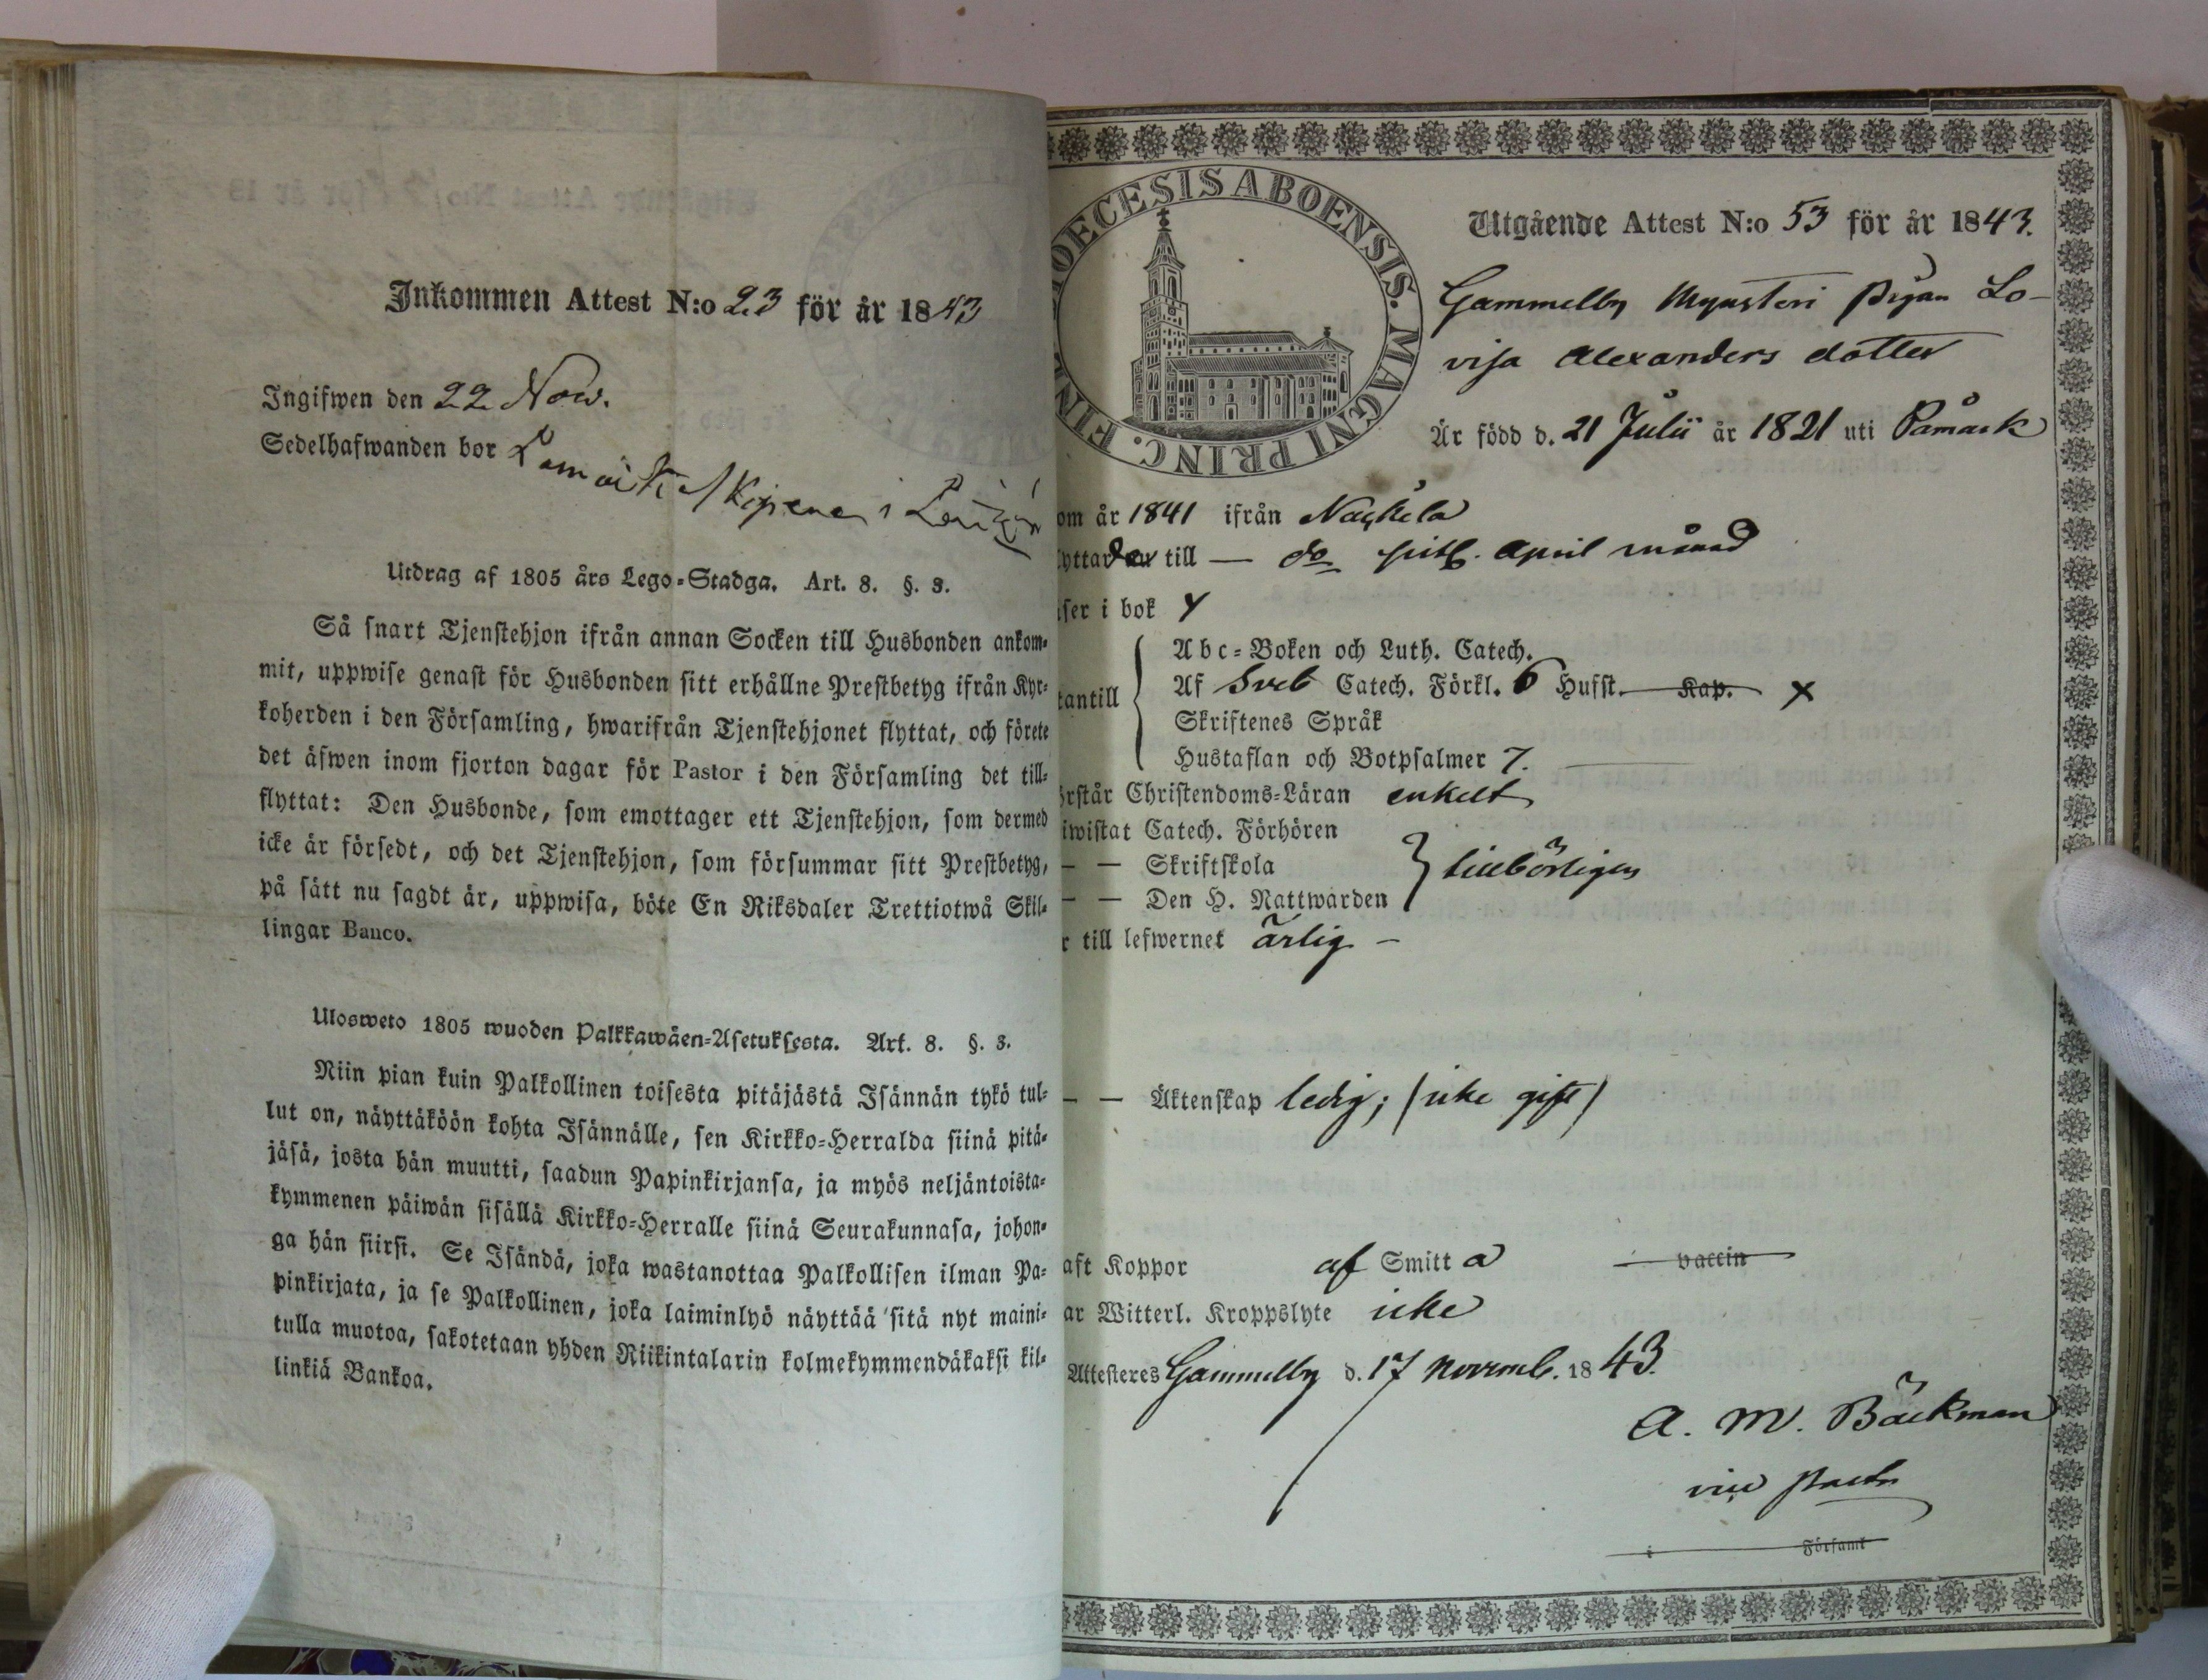 Inkommen Attest N:o 23 för år 1843
Ingifwen den 22 Now.
Sedelhafwanden bor
Utdrag af 1805 års Lego-Stadga. Art. 8. §. 3.
Så snart Tjenstehjon ifrån annan Socken till Husbonden ankom-
mit, uppwise genast för Husbonden sitt erhållne Prestbetyg ifrån Kyr-
koherden i den Församling, hwarifrån Tjenstehjonet flyttat, och förete
det äfwen inom fjorton dagar för Pastor i den Församling det till-
flyttat: Den Husbonde, som emottager ett Tjenstehjon, som dermed
icke är försedt, och det Tjenstehjon, som försummar sitt Prestbetyg,
på sätt nu sagdt är, uppwisa, böte En Riksdaler Trettiotwå Skil-
lingar Banco.
Ulosweto 1805 wuoden Palkkawäen-Asetuksesta. Art. 8. §. 3.
Niin pian kuin Palkollinen toisesta pitäjästä Isännän tykö tul-
lut on, näyttäköön kohta Isännälle, sen Kirkko-Herralda siinä pitä-
jäsä, josta hän muutti, saadun Papinkirjansa, ja myös neljäntoista-
kymmenen päiwän sisällä Kirkko-Herralle siinä Seurakunnasa, johon-
ga hän siirsi. Se Isändä, joka wastanottaa Palkollisen ilman Pa-
pinkirjata, ja se Palkollinen, joka laiminlyö näyttää sitä nyt maini-
tulla muotoa, sakotetaan yhden Riikintalarin kolmekymmendäkaksi kil-
linkiä Bankoa.
DIOECESIS ABOENSIS. MAGNI PRINC. FIN
Utgående Attest N:o 53 för år 1843.
Gammelby Mynsteri pigan Lo-
visa Alexanders dotter
Är född d. 21 Julii år 1821 uti Påmark
om år 1841 ifrån Nackila
yttar till — do sistl. April månad
äser i bok y
tantill
Abc-Boken och Luth. Catech.
Af Sveb Catech. Förkl. 6 Husst. Kap. x
Skriftenes Språk
Hustaflan och Botpsalmer 7.
örstår Christendoms-Läran enkelt
iwistat Catech. Förhören
— — Skriftskola
tillbörligen
— — Den H. Nattwarden
r till lefwernet ärlig —
— — Äktenskap ledig; (icke gift)
aft Koppor af Smitta vaccin
ar Witterl. Kroppslyte icke
Attesteres Gammelby d. 17 Novemb. 1843.
A. M. Bäckman
vice pastor
i Församl